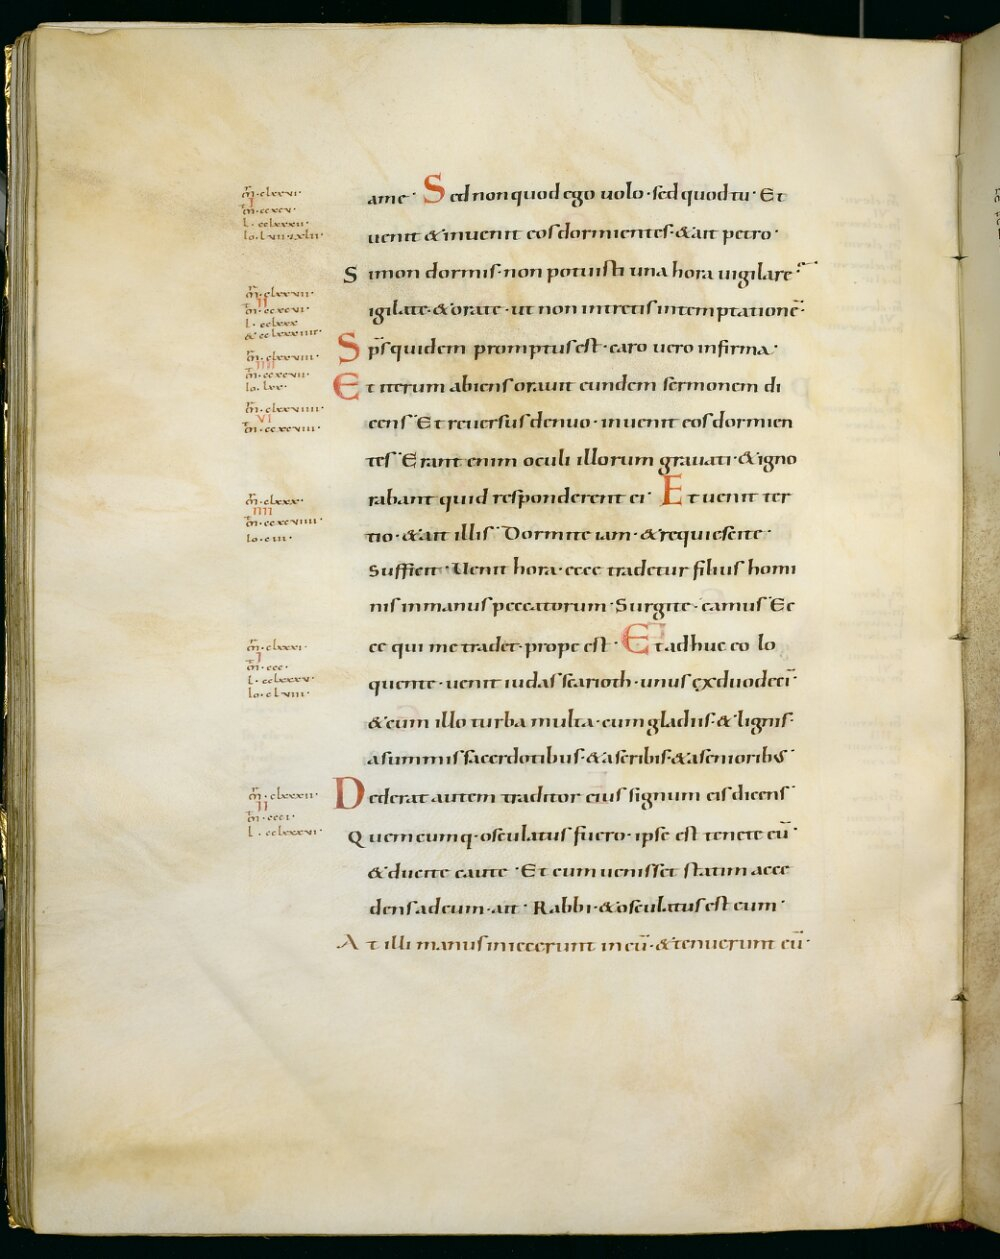 ame· Sed non quod ego uolo· sed quod tu· Et
uenit & inuenit eos dormientes· & ait petro·
Simon dormis· non potuisti una hora uigilare
igilate· & orate· ut non intretis in temptationē·
Sps̄ quidem promptus est· caro uero infirma·
Et iterum abiens orauit eundem sermonem di
cens· Et reuersus denuo· inuenit eos dormien
tes· Erant enim oculi illorum grauati· & igno
rabant quid responderent ei· Et uenit ter
tio· & ait illis· Dormite iam· & requiescite·
Sufficit· Uenit hora· ecce tradetur filius homi
nis in manus peccatorum· Surgite· eamus· Ec
ce qui me tradet· prope est· Et adhuc eo lo
quente· uenit iudas scarioth· unus ex duodeci̅·
& cum illo turba multa· cum gladiis· & lignis·
a summis sacerdotibus· & a scribis· & a senioribus
Dederat autem traditor eius signum eis dicens·
Quemcumq· osculatus fuero· ipse est tenete eū·
& ducite caute· Et cum uenisset statim acce
dens ad eum· ait· Rabbi· & osculatus est eum·
At illi manus iniecerunt in eū· & tenuerunt eū·
m̄· clxxvi·
I
m̄· ccxcv·
l· cclxxxii·
io· lvii· lxii·
m̄· clxxvii·
II
m̄· ccxcvi·
l· cclxxx
& cclxxxiiii·
m̄· clxxviii·
IIII
m̄· ccxcvii·
io· lxx·
m̄· clxxviiii·
VI
m̄· ccxcviii·
m̄· clxxx·
IIII
m̄· ccxcviiii·
io· ciii·
m̄· clxxxi·
I
m̄· ccc·
l· cclxxxv·
io· clviii·
m̄· clxxxii·
II
m̄· ccci·
l· cclxxxvi·